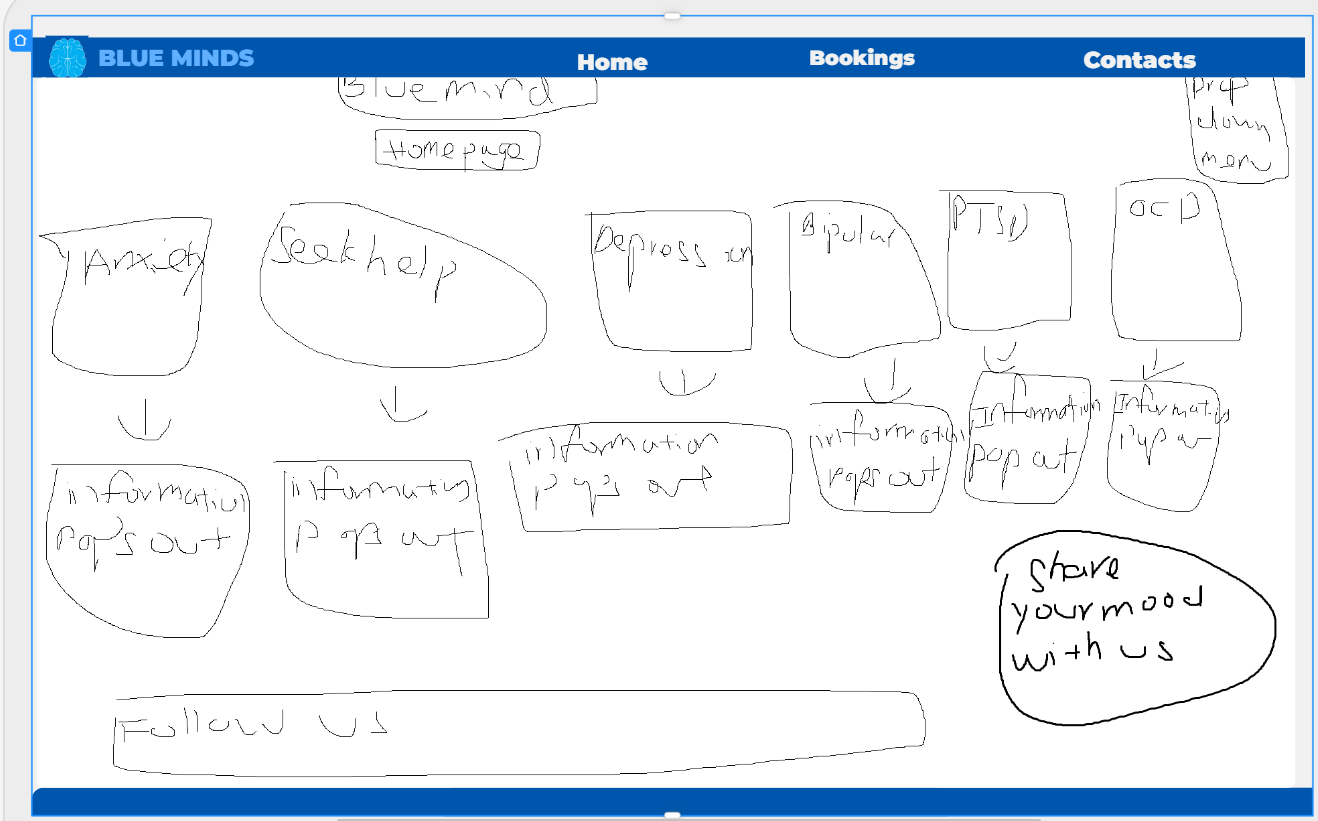 BLUE MINDS
Home
Bookings
Contacts
Bluemind
Homepage
Drop
down
menu
Anxiety
Seek help
Depression
Bipolar
PTSD
OCD
information
pops out
information
pops out
information
pops out
information
pops out
Information
pop out
Information
pop out
Share
your mood
with us
Follow us